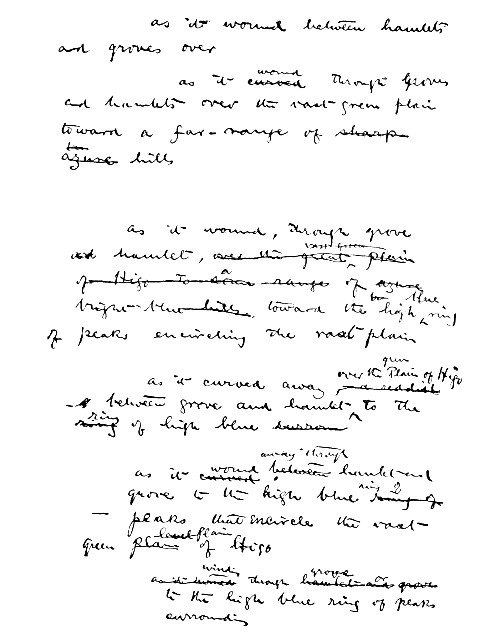 as it wound between hamlets
and groves over
wound
as it curved through groves
and hamlets over the vast green plain
toward a far-range of sharp
azure hills
as it wound, through grove
and hamlet, over the great plain
vast green
of Higo to a range of azure
blue
bright blue hills, toward the high ring
of peaks encircling the vast plain
green
over the Plain of Higo
as it curved away a reddish
between grove and hamlet to the
ring
ring of high blue
away through
wound
as it curved between hamlet and
grove to the high blue ring of
peaks that encircle the vast
level Plain
green plain of Higo
winds
grove
as it wound through hamlets and groves
to the high blue ring of peaks
surrounding